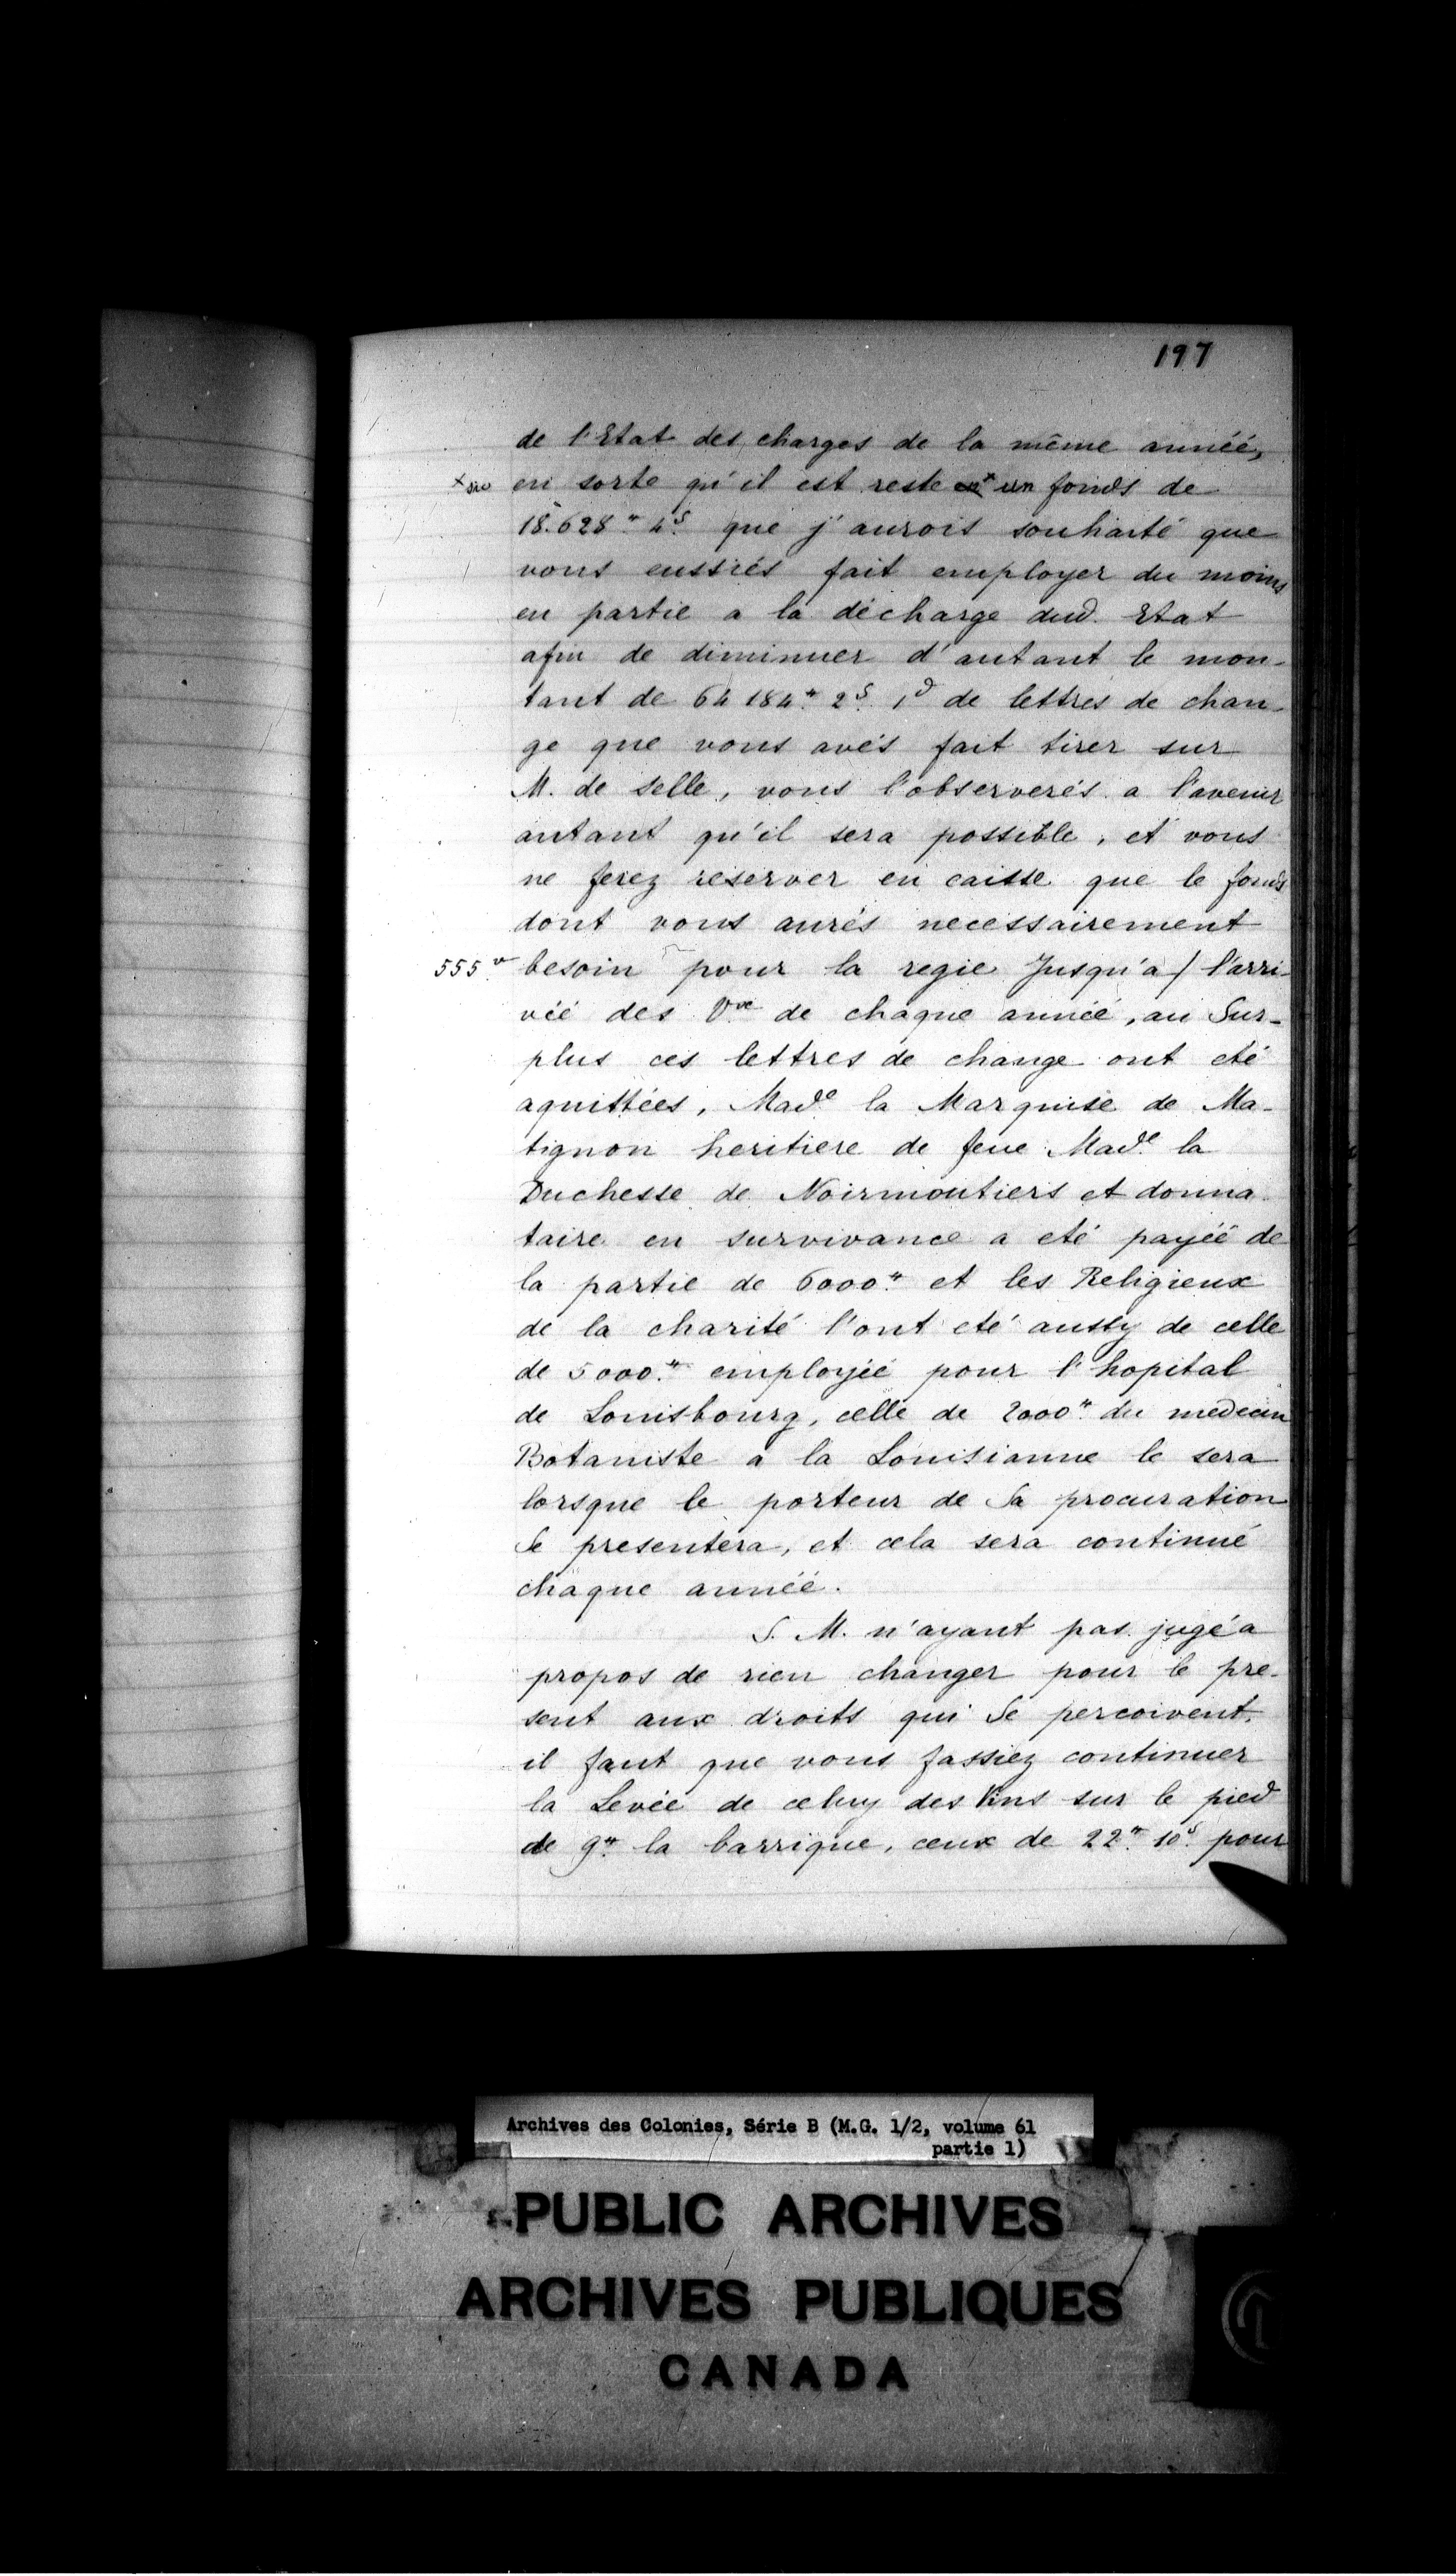 197
de l'Etat des charges de la même annéé,
x sic en sorte qu'il est reste en x un fonds de
18.628# 4s que j'aurois souhaité que
vous eussiés fait employer du moins
en partie a la décharge dud. Etat
afin de diminuer d'autant le mon-
tant de 64184# 2s 1d de lettres de chan-
ge que vous avés fait tirer sur
M. de selle, vous l'observerés a l'avenir
autant qu'il sera possible, et vous
ne ferez reserver en caisse que le fonds
dont vous aurés necessairement
555 v besoin pour la regie Jusqu'a / l'arri-
véé des Vx de chaque annéé, au Sur-
plus ces lettres de change ont eté
aquittées, Made la Marquise de Ma-
tignon heritiere de feue Made la
Duchesse de Noirmoutiers et donna-
taire en survivance a eté payéé de
la partie de 6000# et les Religieux
de la charité l'ont eté aussy de celle
de 5000# employéé pour l'hopital
de Louisbourg, celle de 2000# du medecin
Botaniste a la Louisianne le sera
lorsque le porteur de Sa procuration
Se presentera, et cela sera continué
chaque annéé.
S. M. n'ayant pas jugé a
propos de rien changer pour le pre-
sent aux droits qui Se percoivent,
il faut que vous fassiez continuer
la Levée de celuy des Vins sur le pied
de 9# la barrique, ceux de 22# 10s pour
Archives des Colonies, Série B (M.G. 1/2, volume 61
partie 1)
PUBLIC ARCHIVES
ARCHIVES PUBLIQUES
CANADA